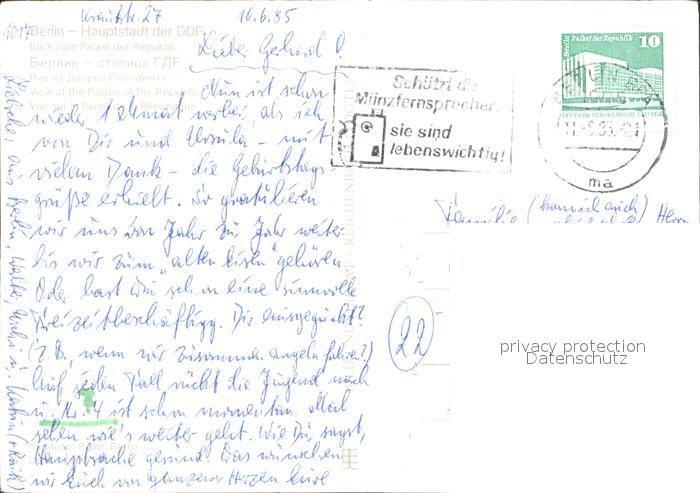 Krautstr. 27 10.6.85
1017
Berlin – Hauptstadt der DDR
Blick zum Palast der Republik
Берлин – столица ГДР
Вид на Дворец Республики
View of the Palace of the Republic
Vue sur le Palais de la République
Lieber Gerhard!
Nun ist schon
wieder 1 Monat vorbei, als ich
von Dir und Ursula – mit
vielem Dank – die Geburtstags-
grüße erhielt. So gratulieren
wir uns von Jahr zu Jahr weiter
bis wir zum „alten Eisen" gehören.
Oder hast Du schon eine sinnvolle
Freizeitbeschäftigg. Dir ausgeguckt?
(z. B., wenn wir zusammen angeln fahren?)
Auf jeden Fall rückt die Jugend nach
u. Nr. 4 ist schon momentan. Mal
sehen wie's weiter geht. Wie Du sagst,
Hauptsache gesund. Das wünschen
wir Euch von ganzem Herzen Eure
aus Berlin, Walter, u. Katrin
Schützt die
Münzfernsprecher.
sie sind
lebenswichtig!
Berlin Palast der Republik 10
DEUTSCHE DEMOKRATISCHE REPUBLIK
BERLIN
ma
Familie Herrn
22
privacy protection
Datenschutz